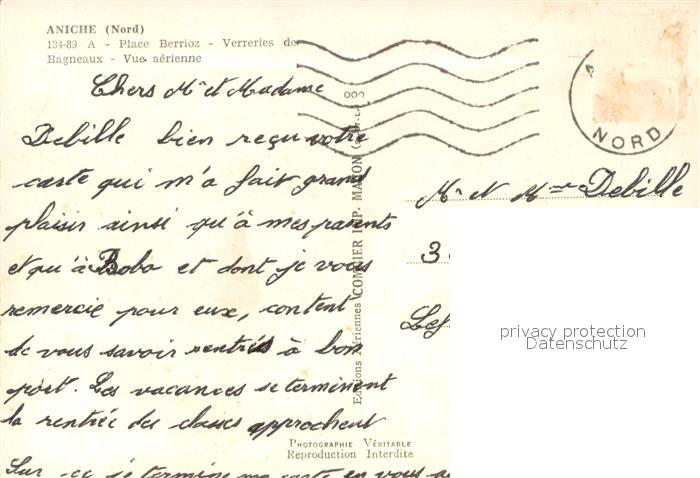 ANICHE (Nord)
134-89 A - Place Berrioz - Verreries de
Bagneaux - Vue aérienne
Chers Mr et Madame
Debille bien reçu votre
carte qui m'a fait grand
plaisir ainsi qu'à mes parents
et qu'à Bobo et dont je vous
remercie pour eux, content
de vous savoir rentrés à bon
port. Les vacances se terminent
la rentrée des classes approchent
Sur ce je termine ma carte en vous
Editions Aériennes COMBIER IMP. MACON
PHOTOGRAPHIE VÉRITABLE
Reproduction Interdite
NORD
Mr et Mme Debille
3
privacy protection
Datenschutz